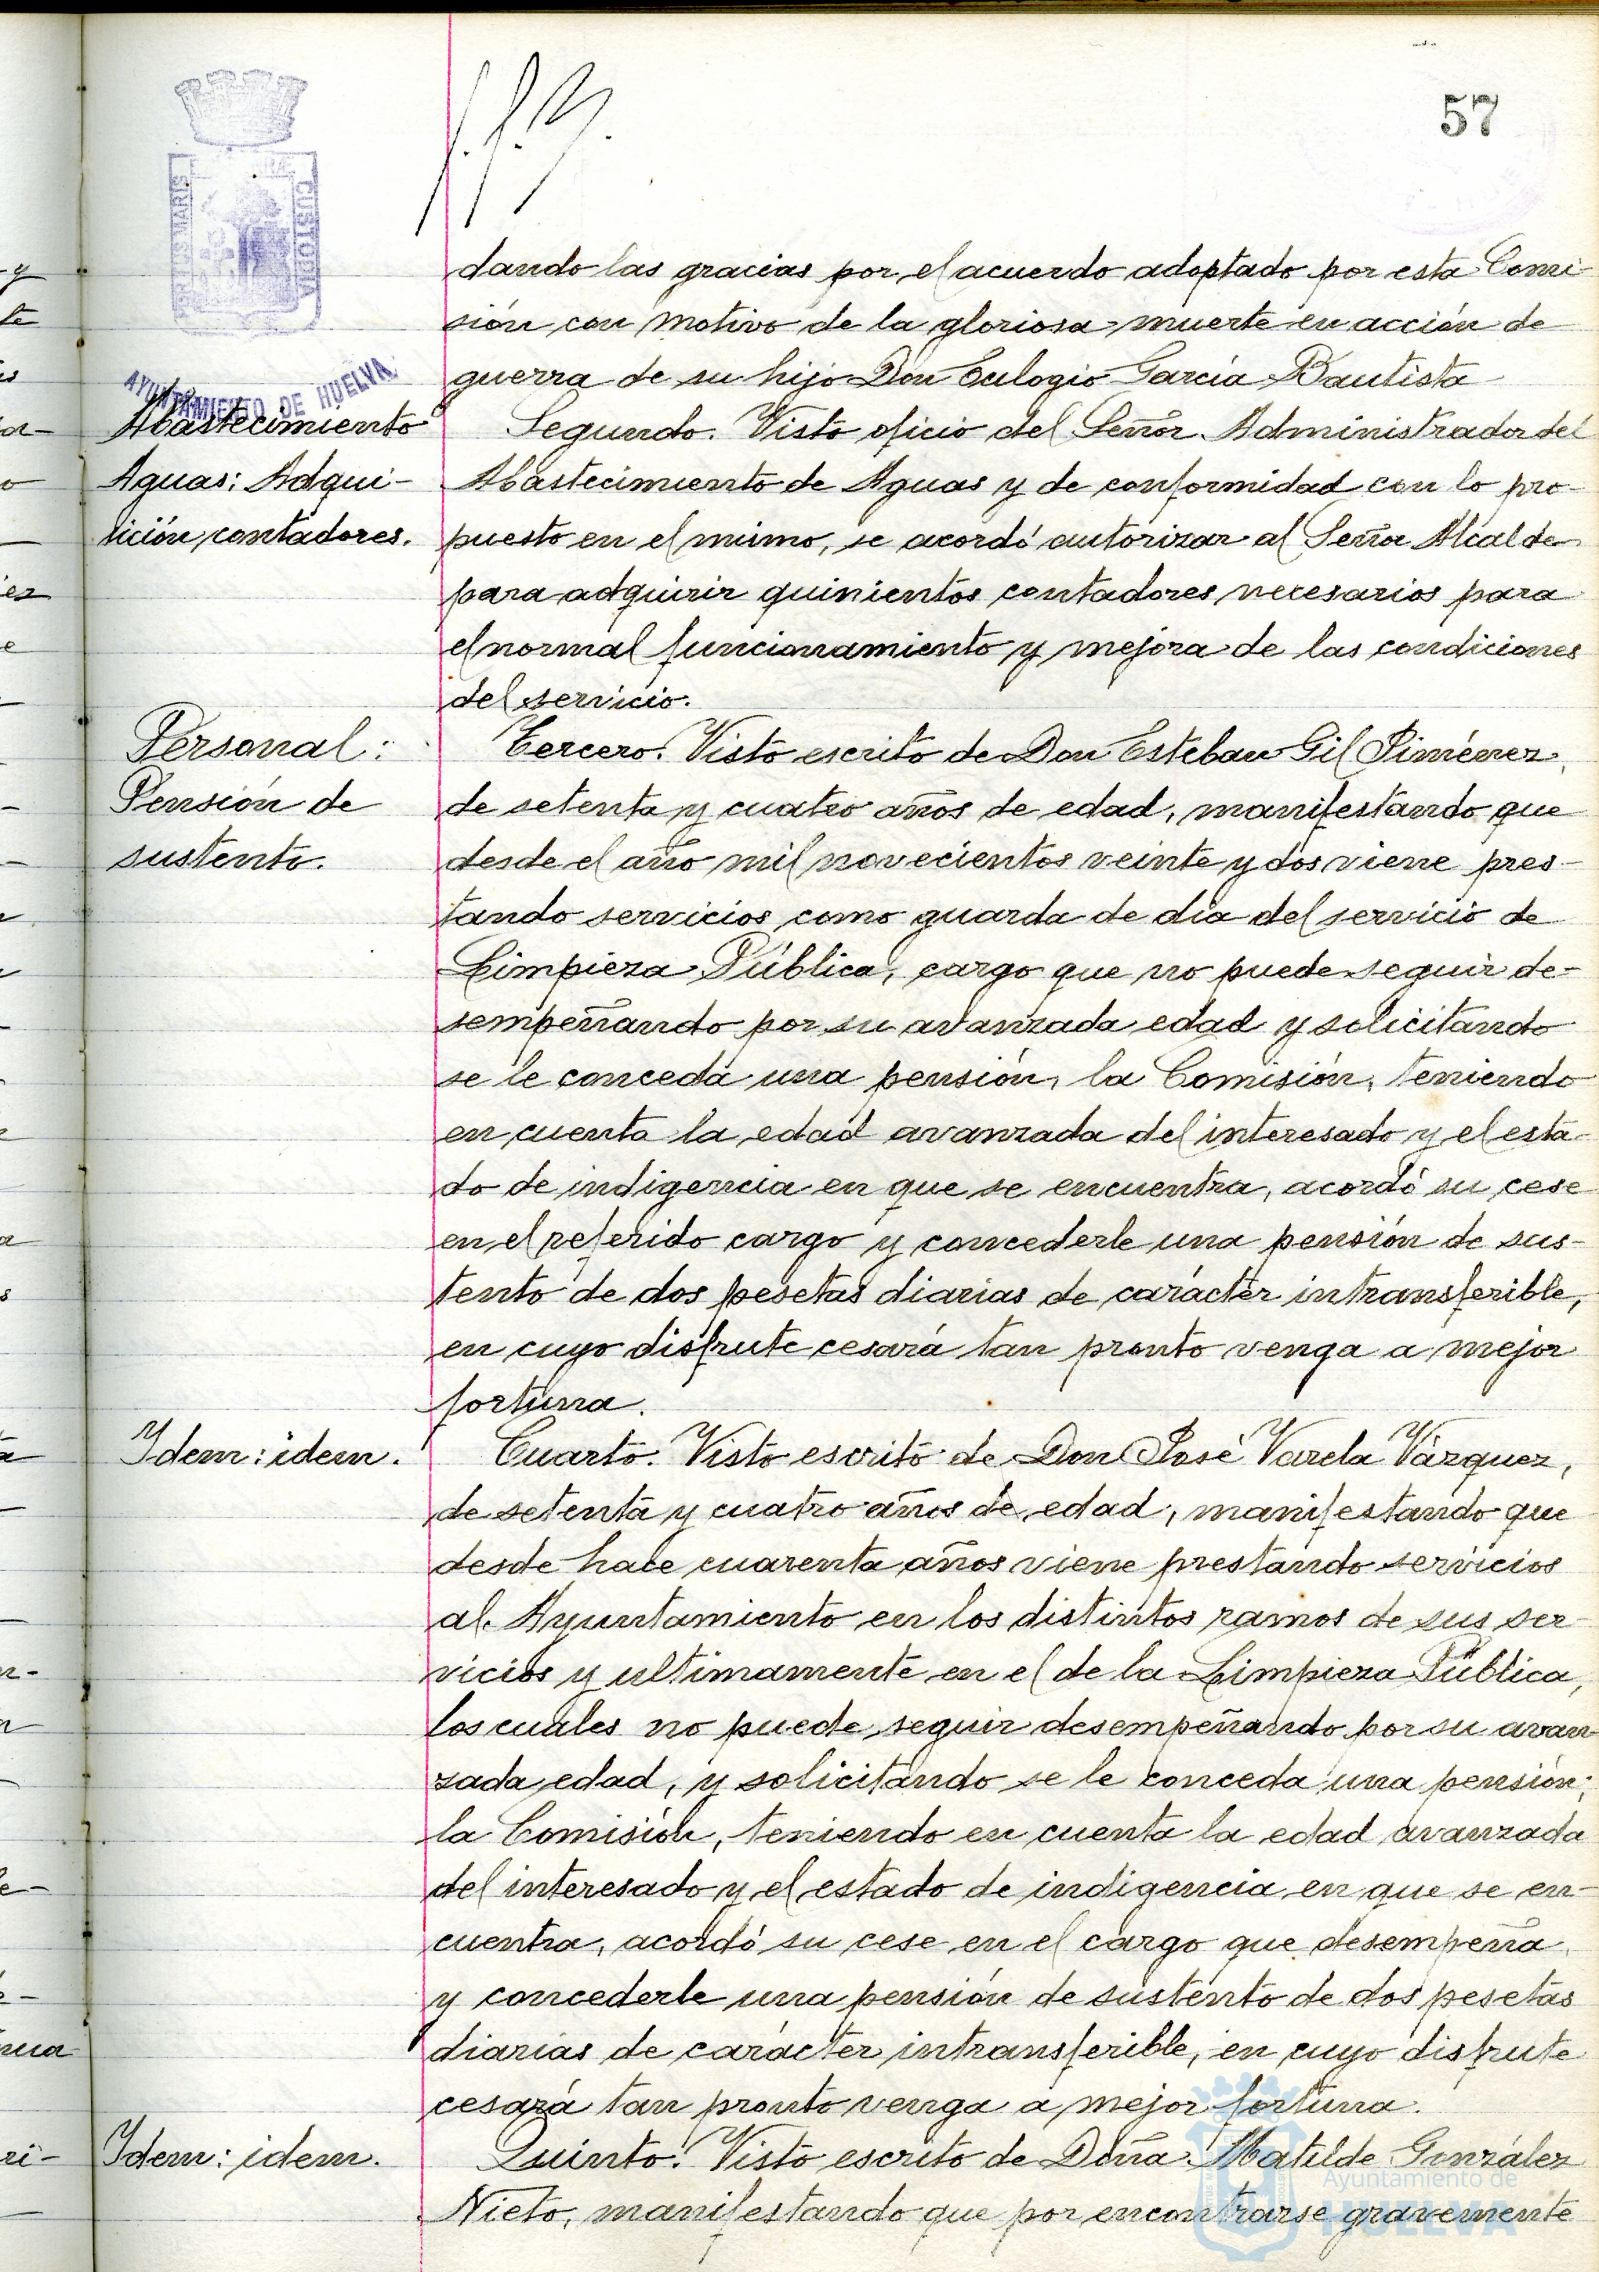 57
AYUNTAMIENTO DE HUELVA
dando las gracias por el acuerdo adoptado por esta Comi-
sión con motivo de la gloriosa muerte en acción de
guerra de su hijo Don Eulogio García Bautista
Abastecimiento
Aguas: Adqui-
sición contadores.
Segundo. Visto oficio del Señor Administrador del
Abastecimiento de Aguas y de conformidad con lo pro-
puesto en el mismo, se acordó autorizar al Señor Alcalde
para adquirir quinientos contadores necesarios para
el normal funcionamiento y mejora de las condiciones
del servicio.
Personal:
Pensión de
sustento.
Tercero. Visto escrito de Don Esteban Gil Jiménez,
de setenta y cuatro años de edad, manifestando que
desde el año mil novecientos veinte y dos viene pres-
tando servicios como guarda de día del servicio de
Limpieza Pública, cargo que no puede seguir de-
sempeñando por su avanzada edad y solicitando
se le conceda una pensión, la Comisión, teniendo
en cuenta la edad avanzada del interesado y el esta-
do de indigencia en que se encuentra, acordó su cese
en el referido cargo y concederle una pensión de sus-
tento de dos pesetas diarias de carácter intransferible,
en cuyo disfrute cesará tan pronto venga a mejor
fortuna.
Idem: idem.
Cuarto. Visto escrito de Don José Varela Vázquez,
de setenta y cuatro años de edad, manifestando que
desde hace cuarenta años viene prestando servicios
al Ayuntamiento en los distintos ramos de sus ser-
vicios y ultimamente en el de la Limpieza Pública,
los cuales no puede seguir desempeñando por su avan-
zada edad, y solicitando se le conceda una pensión;
la Comisión, teniendo en cuenta la edad avanzada
del interesado y el estado de indigencia en que se en-
cuentra, acordó su cese en el cargo que desempeña
y concederle una pensión de sustento de dos pesetas
diarias de carácter intransferible, en cuyo disfrute
cesará tan pronto venga a mejor fortuna.
Idem: idem.
Quinto. Visto escrito de Doña Matilde González
Nieto, manifestando que por encontrarse gravemente
Ayuntamiento de
HUELVA